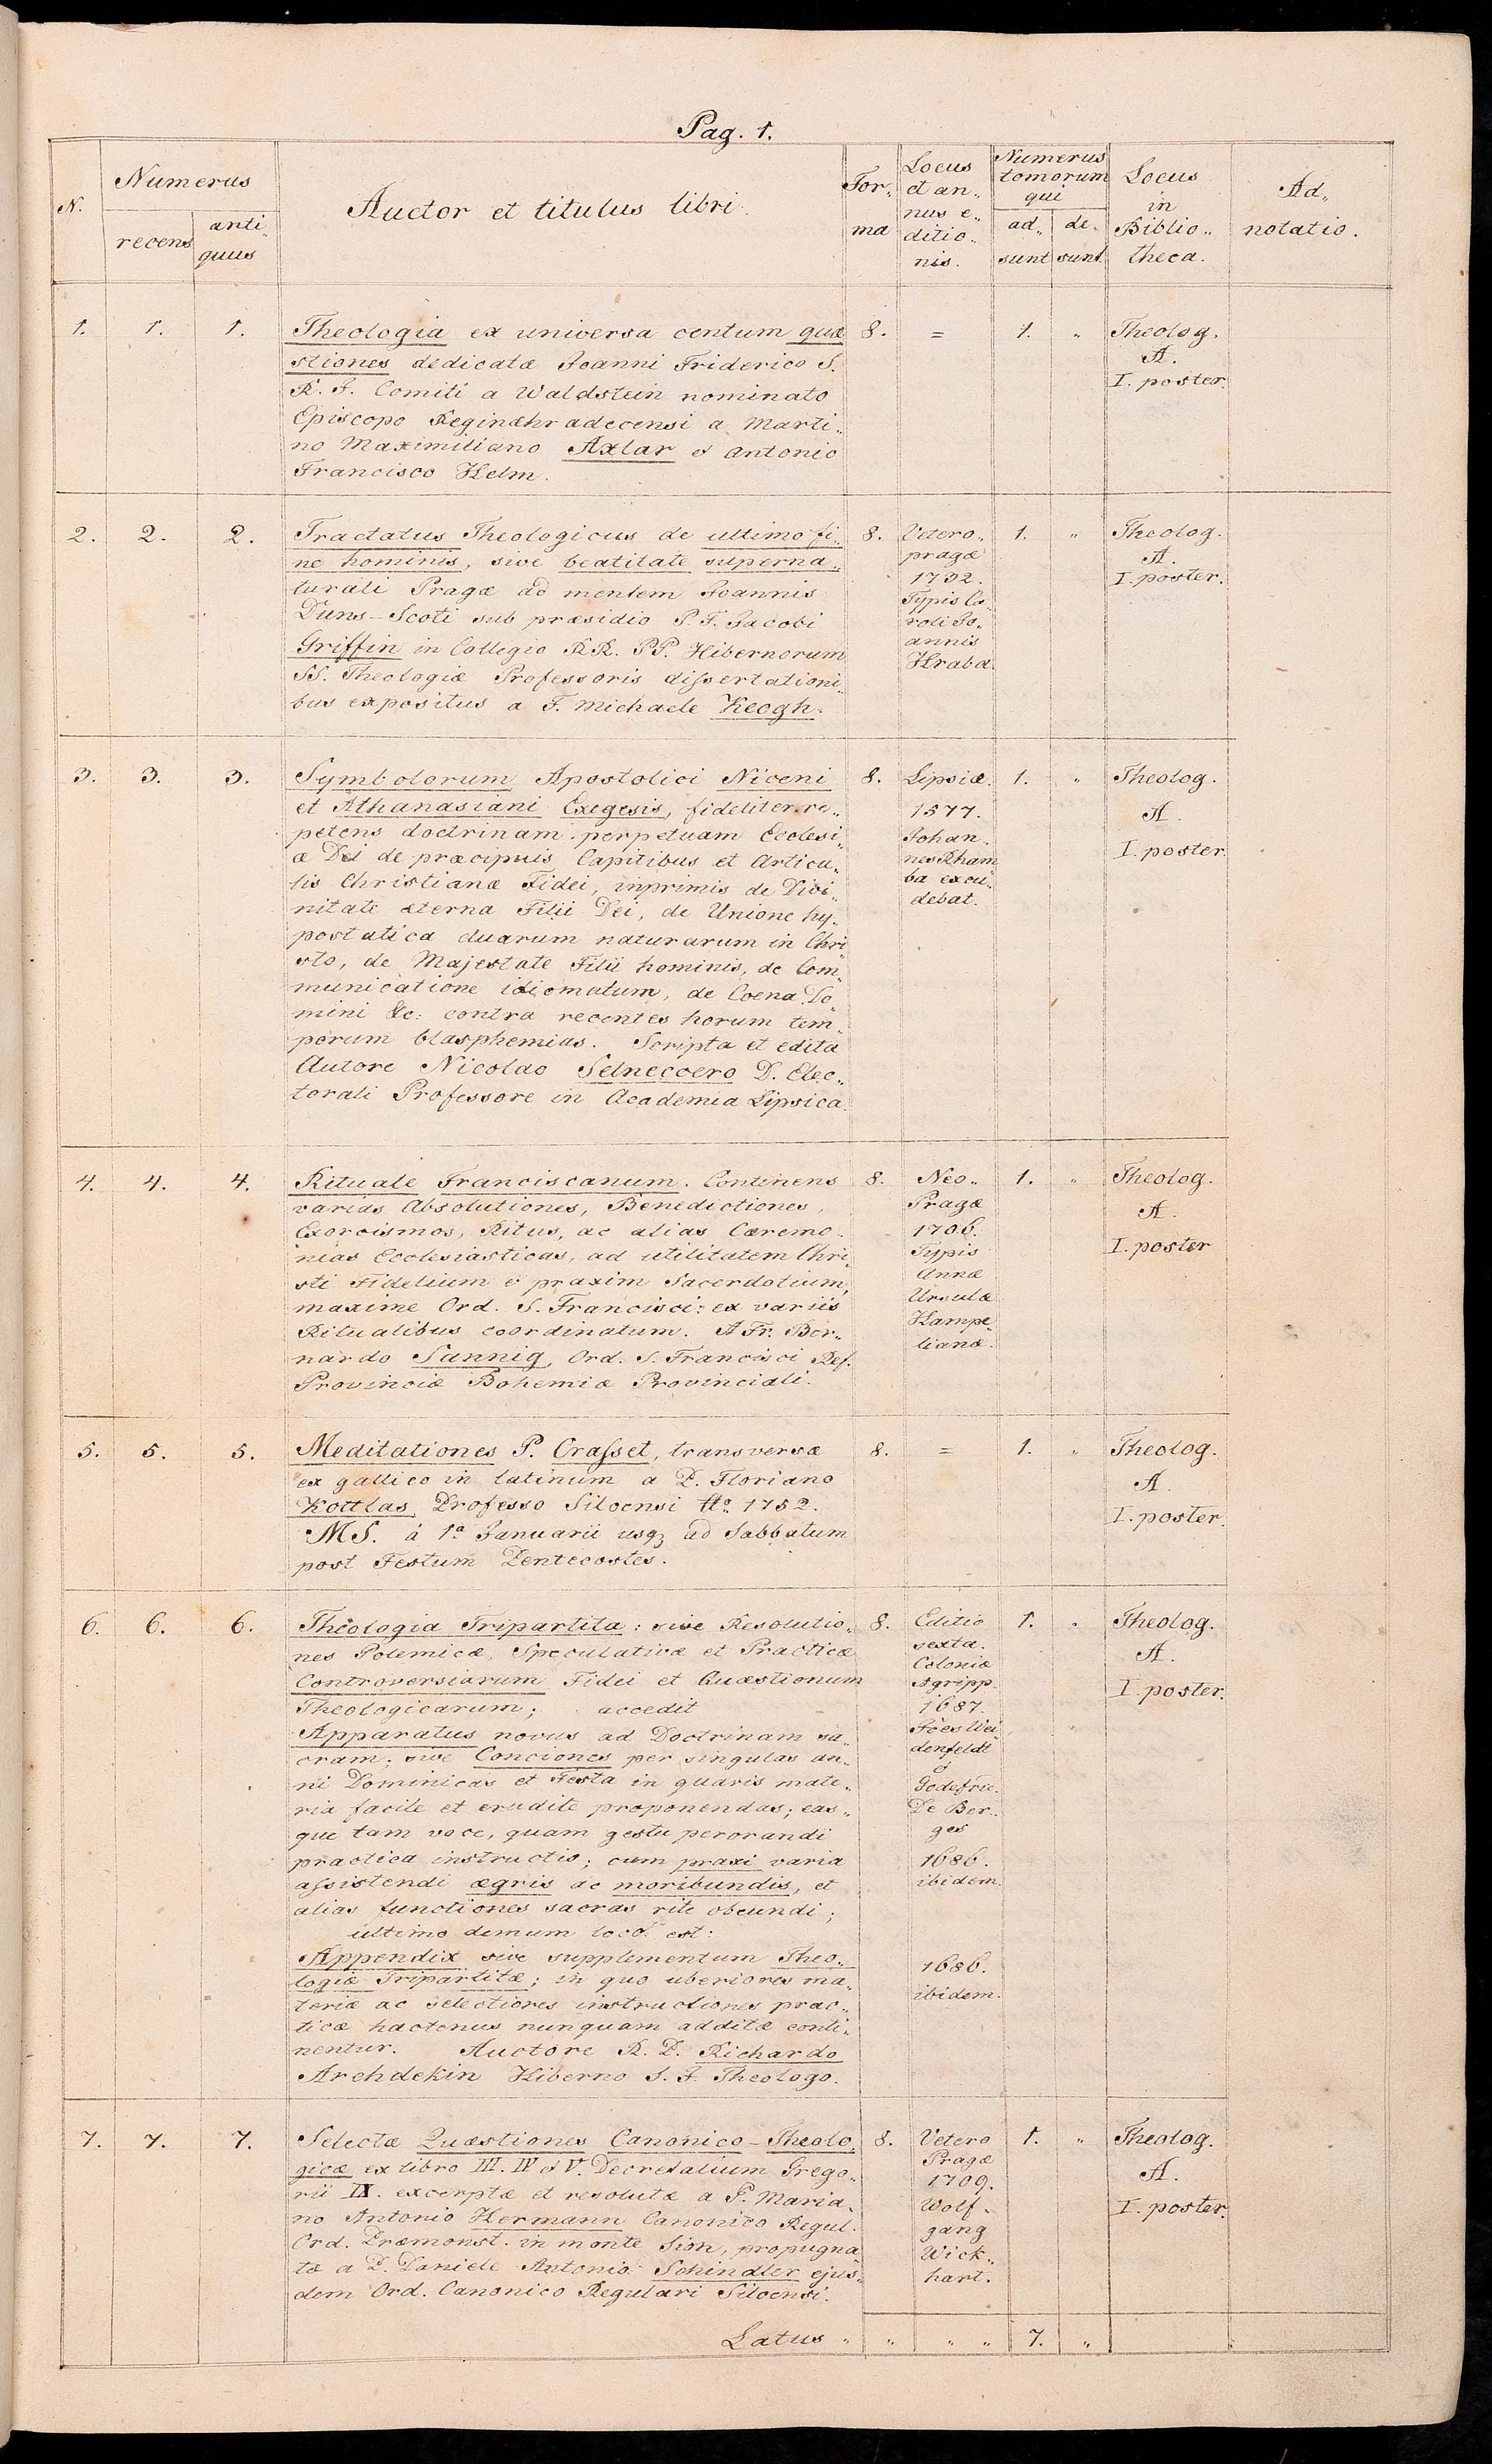 Pag. 1.
N.
Numerus
recens
anti„
quus
Auctor et titulus libri.
For„
ma
Locus
et an„
nus e„
ditio„
nis.
Numerus
tomorum
qui
ad„
sunt
de„
sunt
Locus
in
Biblio„
theca.
Ad„
notatio.
1. 1. 1.
Theologia ex universa centum quæ
stiones dedicatæ Joanni Friderico S.
R. J. Comiti a Waldstein nominato
Episcopo Reginæhradecensi a Marti„
no Maximiliano Axlar et Antonio
Francisco Helm.
8. = 1. „
Theolog.
A.
I. poster.
2. 2. 2.
Tractatus Theologicus de ultimo fi„
ne hominis, sive beatitate superna„
turali Pragæ ad mentem Joannis
Duns-Scoti sub præsidio P. F. Jacobi
Griffin in Collegio RR. PP. Hibernorum
SS. Theologiæ Professoris dissertationi„
bus expositus a F. Michaele Keogh.
8.
Vetero„
pragæ
1732.
Typis Ca„
roli Jo„
annis
Hraba.
1. „
Theolog.
A.
I. poster.
3. 3. 3.
Symbolorum Apostolici Niceni
et Athanasiani Exegesis, fideliter re„
petens doctrinam perpetuam Ecclesi„
æ Dei de præcipuis Capitibus et Articu„
lis Christianæ Fidei, inprimis de Divi„
nitate æterna Filii Dei, de Unione hy„
postatica duarum naturarum in Chri„
sto, de Majestate Filii hominis, de Com„
municatione idiomatum, de Coena Do„
mini &c: contra recentes horum tem„
porum blasphemias. Scripta et edita
Autore Nicolao Selneccero D. Elec„
torali Professore in Academia Lipsica.
8.
Lipsiæ.
1577.
Johan„
nes Rham
ba excu„
debat.
1. „
Theolog.
A.
I. poster.
4. 4. 4.
Rituale Franciscanum. Continens
varias Absolutiones, Benedictiones,
Exorcismos, Ritus, ac alias Cæremo„
nias Ecclesiasticas, ad utilitatem Chri„
sti Fidelium et praxim Sacerdotium,
maxime Ord. S. Francisci: ex variis
Ritualibus coordinatum. A Fr. Ber„
nardo Sannig, Ord. S. Francisci Ref.
Provinciæ Bohemiæ Provinciali.
8.
Neo„
Pragæ
1706.
Typis
Annæ
Ursulæ
Kampe„
lianæ.
1. „
Theolog.
A.
I. poster
5. 5. 5.
Meditationes P. Crasset, transversæ
ex gallico in latinum a P. Floriano
Kottlas, Professo Siloensi Ao. 1752.
MS. à 1a Januarii usq ad Sabbatum
post Festum Pentecostes.
8. = 1. „
Theolog.
A.
I. poster.
6. 6. 6.
Theologia Tripartita: sive Resolutio„
nes Polemicæ, Speculativæ et Practicæ
Controversiarum Fidei et Quæstionum
Theologicarum; accedit
Apparatus novus ad Doctrinam sa„
cram; sive Conciones per singulas an„
ni Dominicas et Festa in quavis mate„
ria facile et erudite proponendas; eas„
que tam voce, quam gestu perorandi
practica instructio; cum praxi varia
assistendi ægris ac moribundis, et
alias functiones sacras rite obeundi;
ultimo demum loco est:
Appendix sive supplementum Theo„
logiæ Tripartitæ; in quo uberiores ma„
teriæ ac selectiores instructiones prac„
ticæ hactenus nunquam additæ conti„
nentur. Auctore R. P. Richardo
Archdekin Hiberno S. J. Theologo.
8.
Editio
sexta.
Coloniæ
Agripp.
1687.
Joes Wei„
denfeldt
et
Godefrid.
De Ber„
ges
1686.
ibidem.
1686.
ibidem.
1. „
Theolog.
A.
I. poster.
7. 7. 7.
Selectæ Quæstiones Canonico-Theolo„
gicæ ex libro III. IV et V. Decretalium Grego„
rii IX. excerptæ et resolutæ a P. Maria„
no Antonio Hermann Canonico Regul.
Ord. Præmonst. in monte Sion, propugna„
tæ a P. Daniele Antonio Schindler ejus„
dem Ord. Canonico Regulari Siloensi.
8.
Vetero
Pragæ
1709.
Wolf„
gang
Wick„
hart.
1. „
Theolog.
A.
I. poster.
Latus „ „ „ „ 7. „